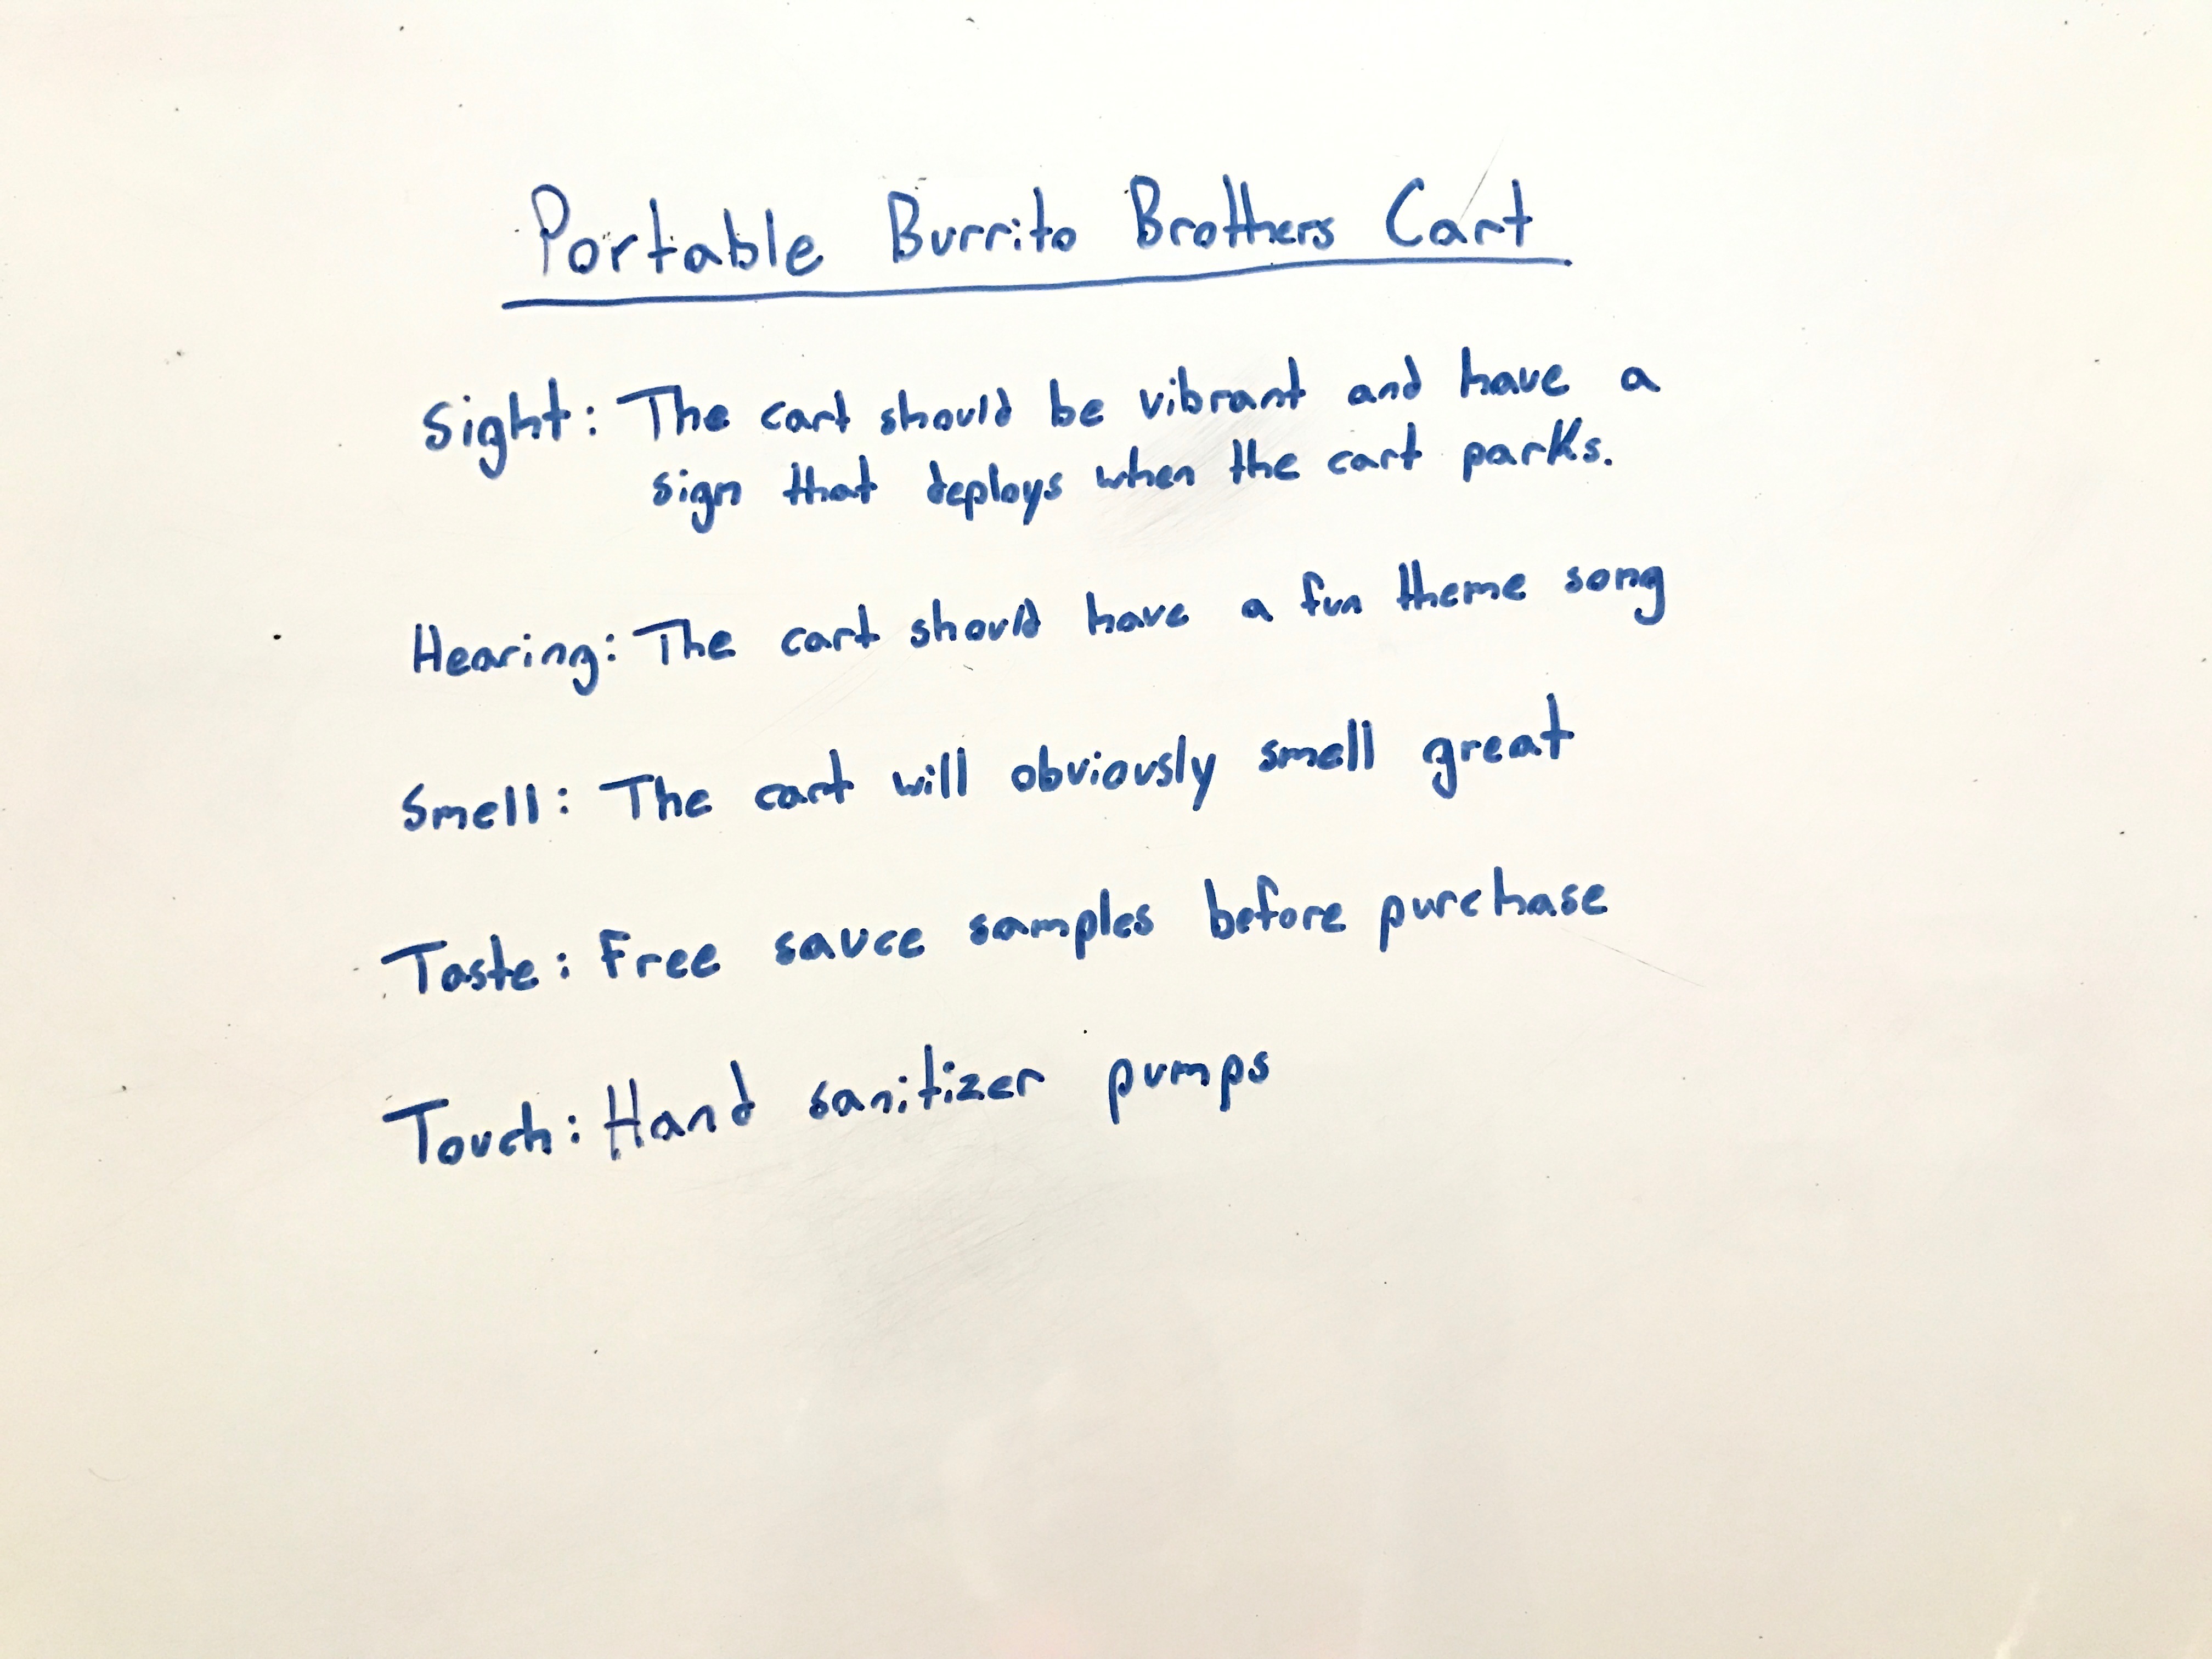 Portable Burrito Brothers Cart
Sight: The cart should be vibrant and have a
sign that deploys when the cart parks.
Hearing: The cart should have a fun theme song
Smell: The cart will obviously smell great
Taste: Free sauce samples before purchase
Touch: Hand sanitizer pumps